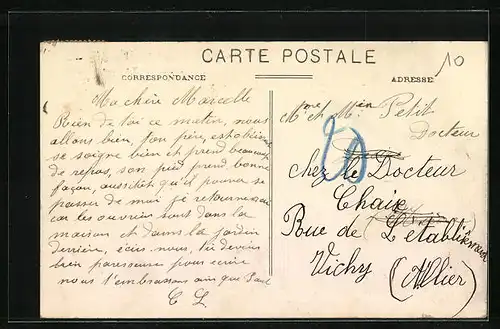 CARTE POSTALE
10
CORRESPONDANCE
ADRESSE
Ma chère Marcelle
Rien de toi ce matin, nous
allons bien, ton père, est obligé
se soigne bien et prend beaucoup
de repos, son pied prend bonne
façon, aussitôt qu'il pourra se
passer de moi je retournerai
car les ouvriers sont dans la
maison et dans le jardin
derrière, écris-nous, tu deviens
bien paresseuse pour écrire
nous t'embrassons ainsi que Paul
C L
Mme et Mr Petit
Docteur
chez le Docteur
Chaix
Rue de L'établissement
Vichy
(Allier)